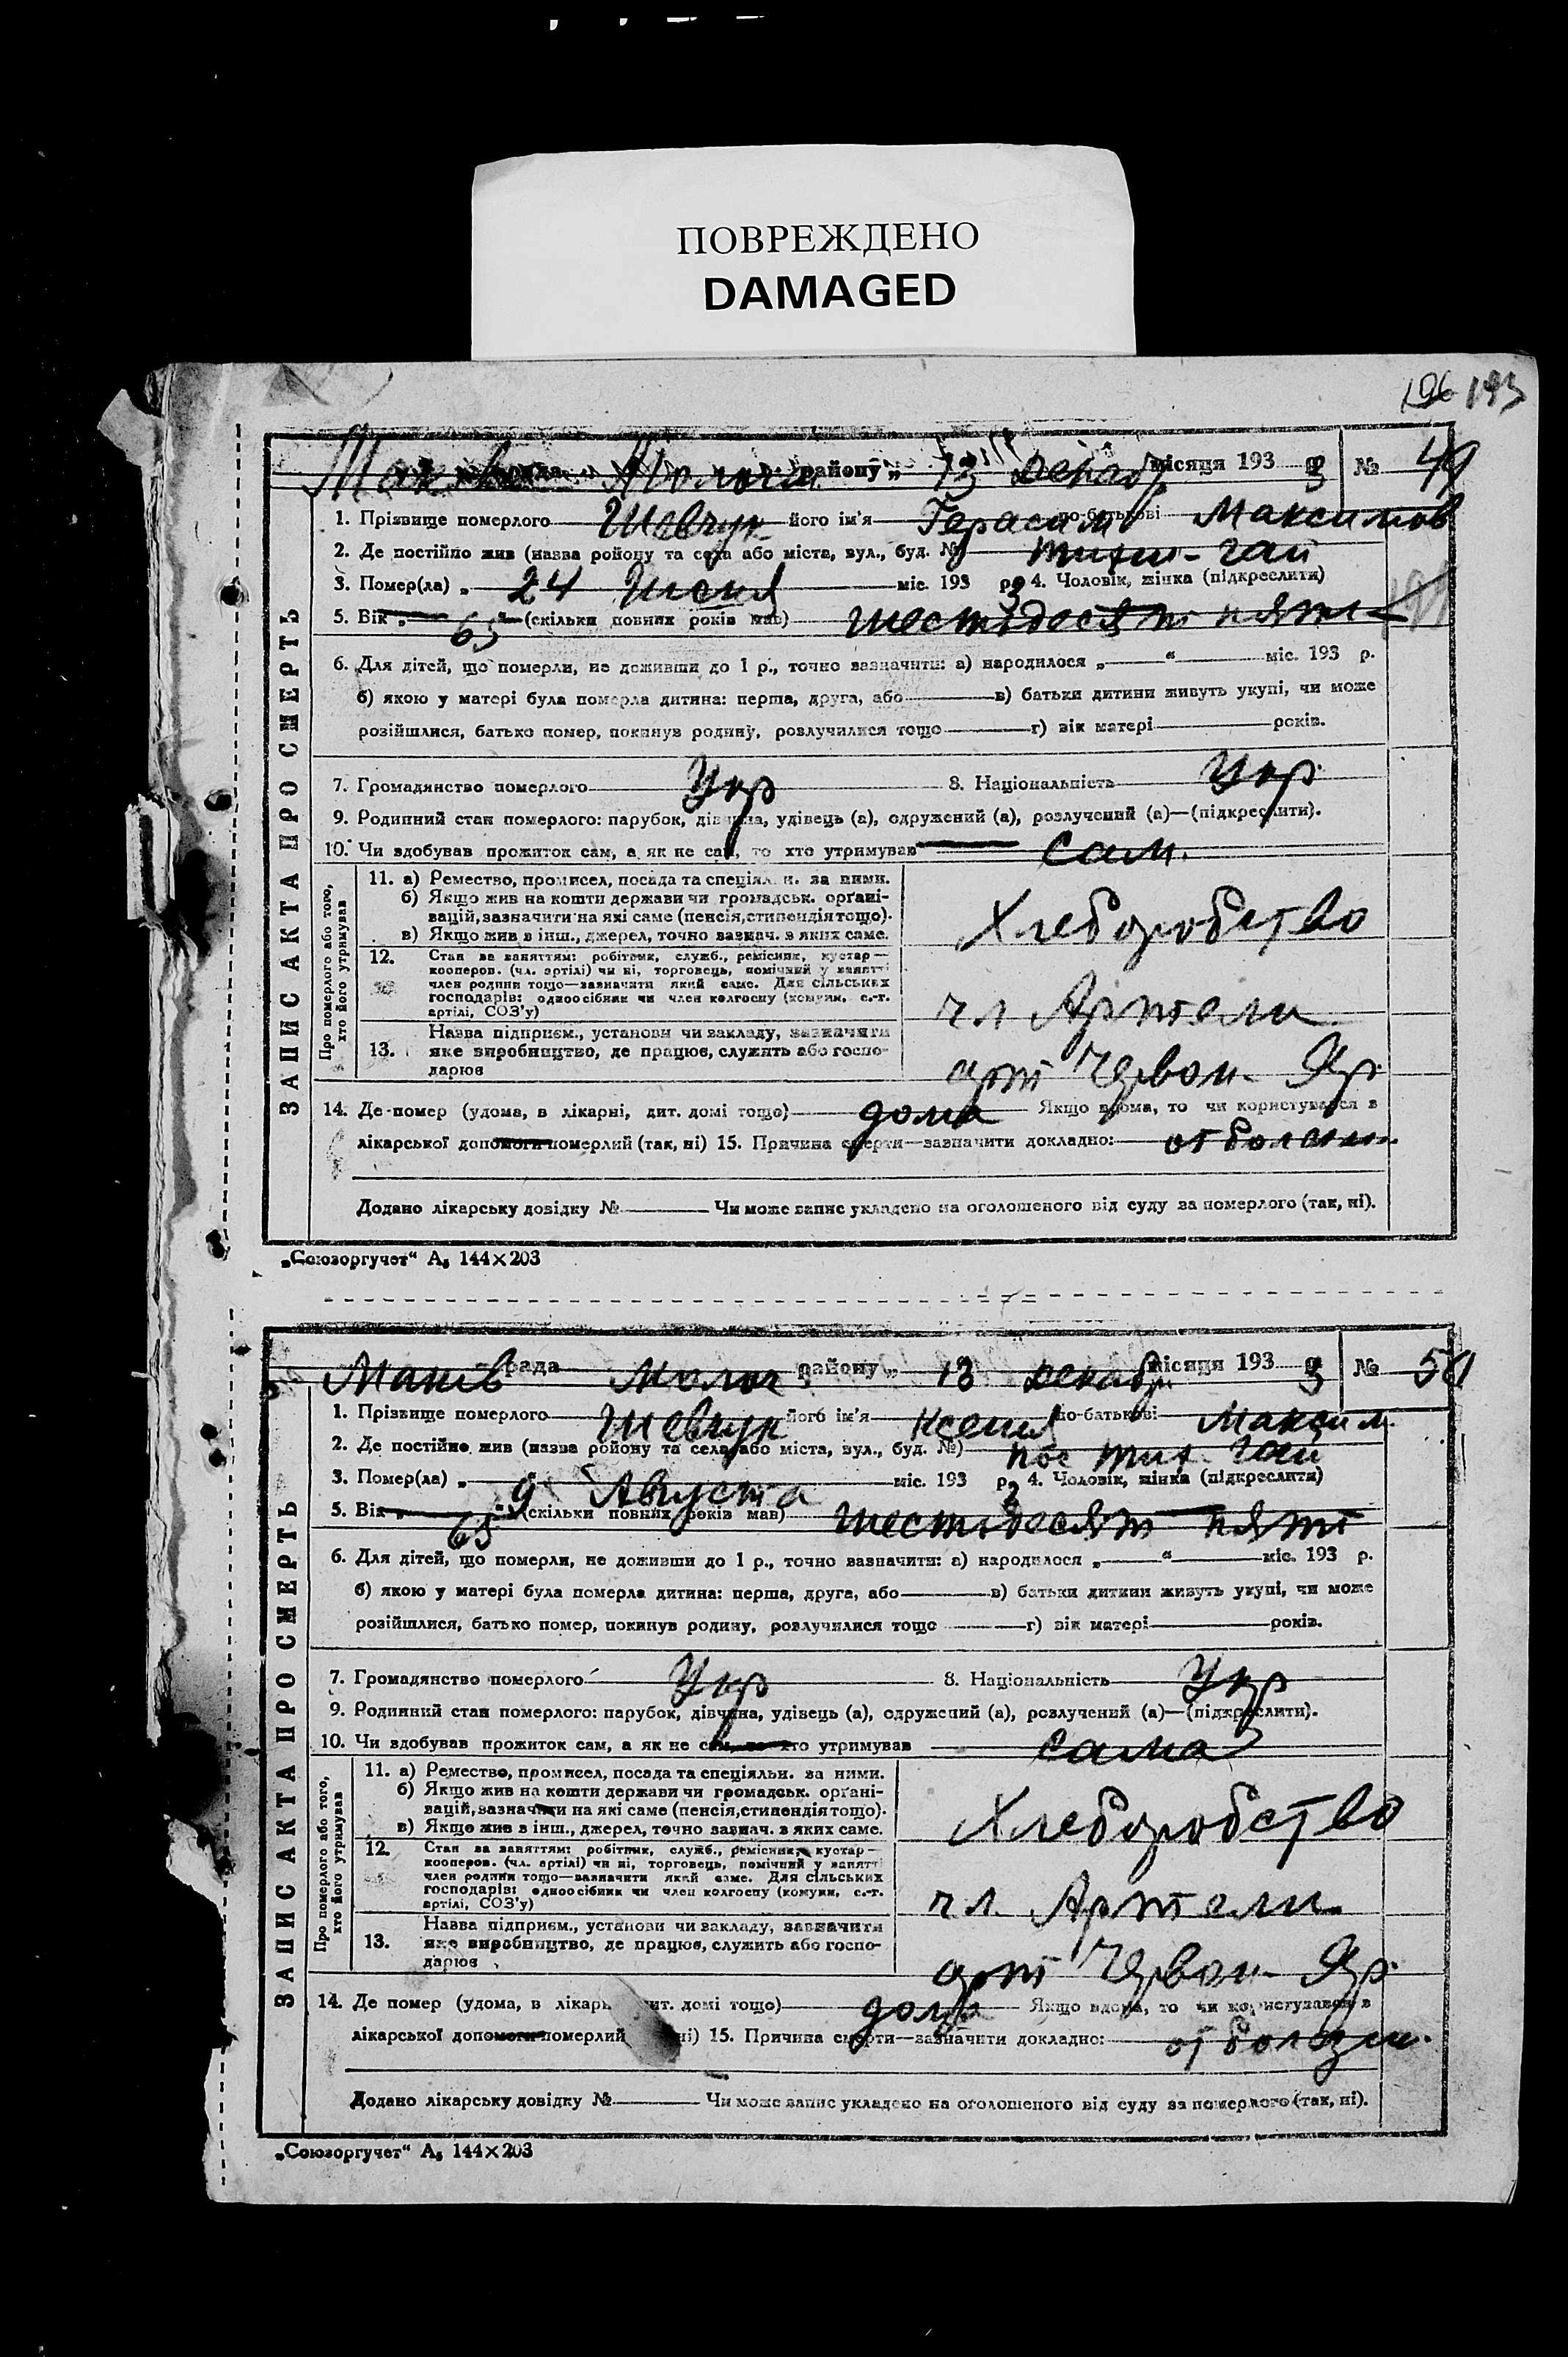 ПОВРЕЖДЕНО
DAMAGED
196 193
району „ 13 декабр місяця 193 3 р № 49
1. Прізвище померлого Шевчук його ім'я Герасим по-батькові Максимов
2. Де постійно жив (назва району та села або міста, вул., буд. №) гай
3. Помер(ла) „ 24 міс. 193 3 р. 4. Чоловік, жінка (підкреслити)
5. Вік „ 65 “ (скільки повних років мав) шестьдесят пять
6. Для дітей, що померли, не доживши до 1 р., точно зазначити: а) народилося „ “ міс. 193 р.
б) якою у матері була померла дитина: перша, друга, або в) батьки дитини живуть укупі, чи може
розійшлися, батько помер, покинув родину, розлучилися тощо г) вік матері років.
7. Громадянство померлого Укр 8. Національність Укр.
9. Родинний стан померлого: парубок, дівчина, удівець (а), одружений (а), розлучений (а)—(підкреслити).
10. Чи здобував прожиток сам, а як не сам, то хто утримував сам.
ЗАПИС АКТА ПРО СМЕРТЬ
Про померлого або того, хто його утримував
11. а) Ремество, промисел, посада та спеціяльн. за ними.
б) Якщо жив на кошти держави чи громадськ. орґані-
зацій, зазначити на які саме (пенсія, стипендія тощо).
в) Якщо жив з інш., джерел, точно зазнач. з яких саме.
Хлеборобство
12. Стан за заняттям: робітник, служб., ремісник, кустар—
кооперов. (чл. артілі) чи ні, торговець, помічний у занятті
член родини тощо—зазначити який саме. Для сільських
господарів: одноосібник чи член колгоспу (комуни, с.-г.
артілі, СОЗ'у)
чл Артели
13. Назва підприєм., установи чи закладу, зазначити
яке виробництво, де працює, служить або госпо-
дарює
арт Червон. Яр
14. Де помер (удома, в лікарні, дит. домі тощо) дома Якщо вдома, то чи користувався з
лікарської допомоги померлий (так, ні) 15. Причина смерти—зазначити докладно: от болезни
Додано лікарську довідку № Чи може запис укладено на оголошеного від суду за померлого (так, ні).
„Союзоргучет“ А₅ 144×203
Маків рада Молоч району „ 13 декабр місяця 193 3 р № 50
1. Прізвище померлого Шевчук його ім'я Ксения по-батькові Максим.
2. Де постійно жив (назва району та села або міста, вул., буд. №) пос Тит. гай
3. Помер(ла) „ 9 Августа міс. 193 3 р. 4. Чоловік, жінка (підкреслити)
5. Вік „ 65 “ (скільки повних років мав) шестьдесят пять
6. Для дітей, що померли, не доживши до 1 р., точно зазначити: а) народилося „ “ міс. 193 р.
б) якою у матері була померла дитина: перша, друга, або в) батьки дитини живуть укупі, чи може
розійшлися, батько помер, покинув родину, розлучилися тощо г) вік матері років.
7. Громадянство померлого Укр 8. Національність Укр
9. Родинний стан померлого: парубок, дівчина, удівець (а), одружений (а), розлучений (а)—(підкреслити).
10. Чи здобував прожиток сам, а як не сам, то хто утримував сама
ЗАПИС АКТА ПРО СМЕРТЬ
Про померлого або того, хто його утримував
11. а) Ремество, промисел, посада та спеціяльн. за ними.
б) Якщо жив на кошти держави чи громадськ. орґані-
зацій, зазначити на які саме (пенсія, стипендія тощо).
в) Якщо жив з інш., джерел, точно зазнач. з яких саме.
Хлеборобство
12. Стан за заняттям: робітник, служб., ремісник, кустар—
кооперов. (чл. артілі) чи ні, торговець, помічний у занятті
член родини тощо—зазначити який саме. Для сільських
господарів: одноосібник чи член колгоспу (комуни, с.-г.
артілі, СОЗ'у)
чл. Артели
13. Назва підприєм., установи чи закладу, зазначити
яке виробництво, де працює, служить або госпо-
дарює
арт Червон. Яр.
14. Де помер (удома, в лікарн дит. домі тощо) дома Якщо вдома, то чи користувався з
лікарської допомоги померлий ні) 15. Причина смерти—зазначити докладно: от болезни.
Додано лікарську довідку № Чи може запис укладено на оголошеного від суду за померлого (так, ні).
„Союзоргучет“ А₅ 144×203